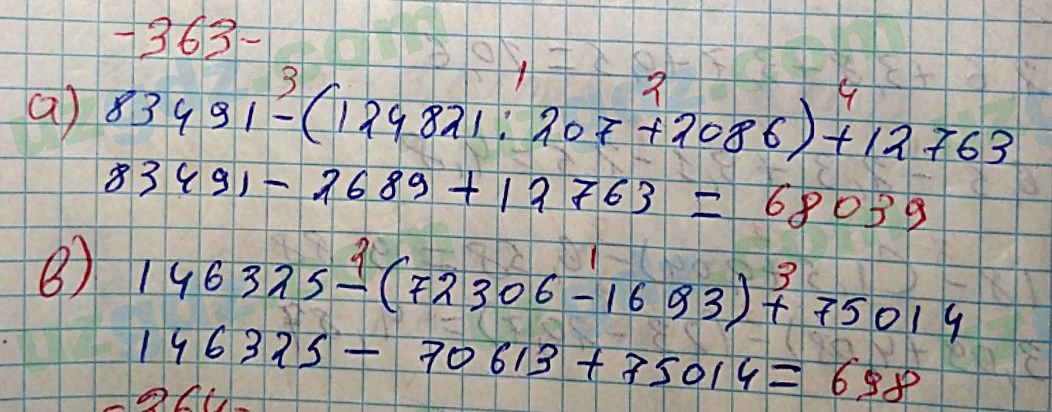 -363-
3 1 2 4
а) 83491-(124821:207+2086)+12763
83491-2689+12763=68039
2 1 3
в) 146325-(72306-1693)+75014
146325-70613+75014=698
-364-